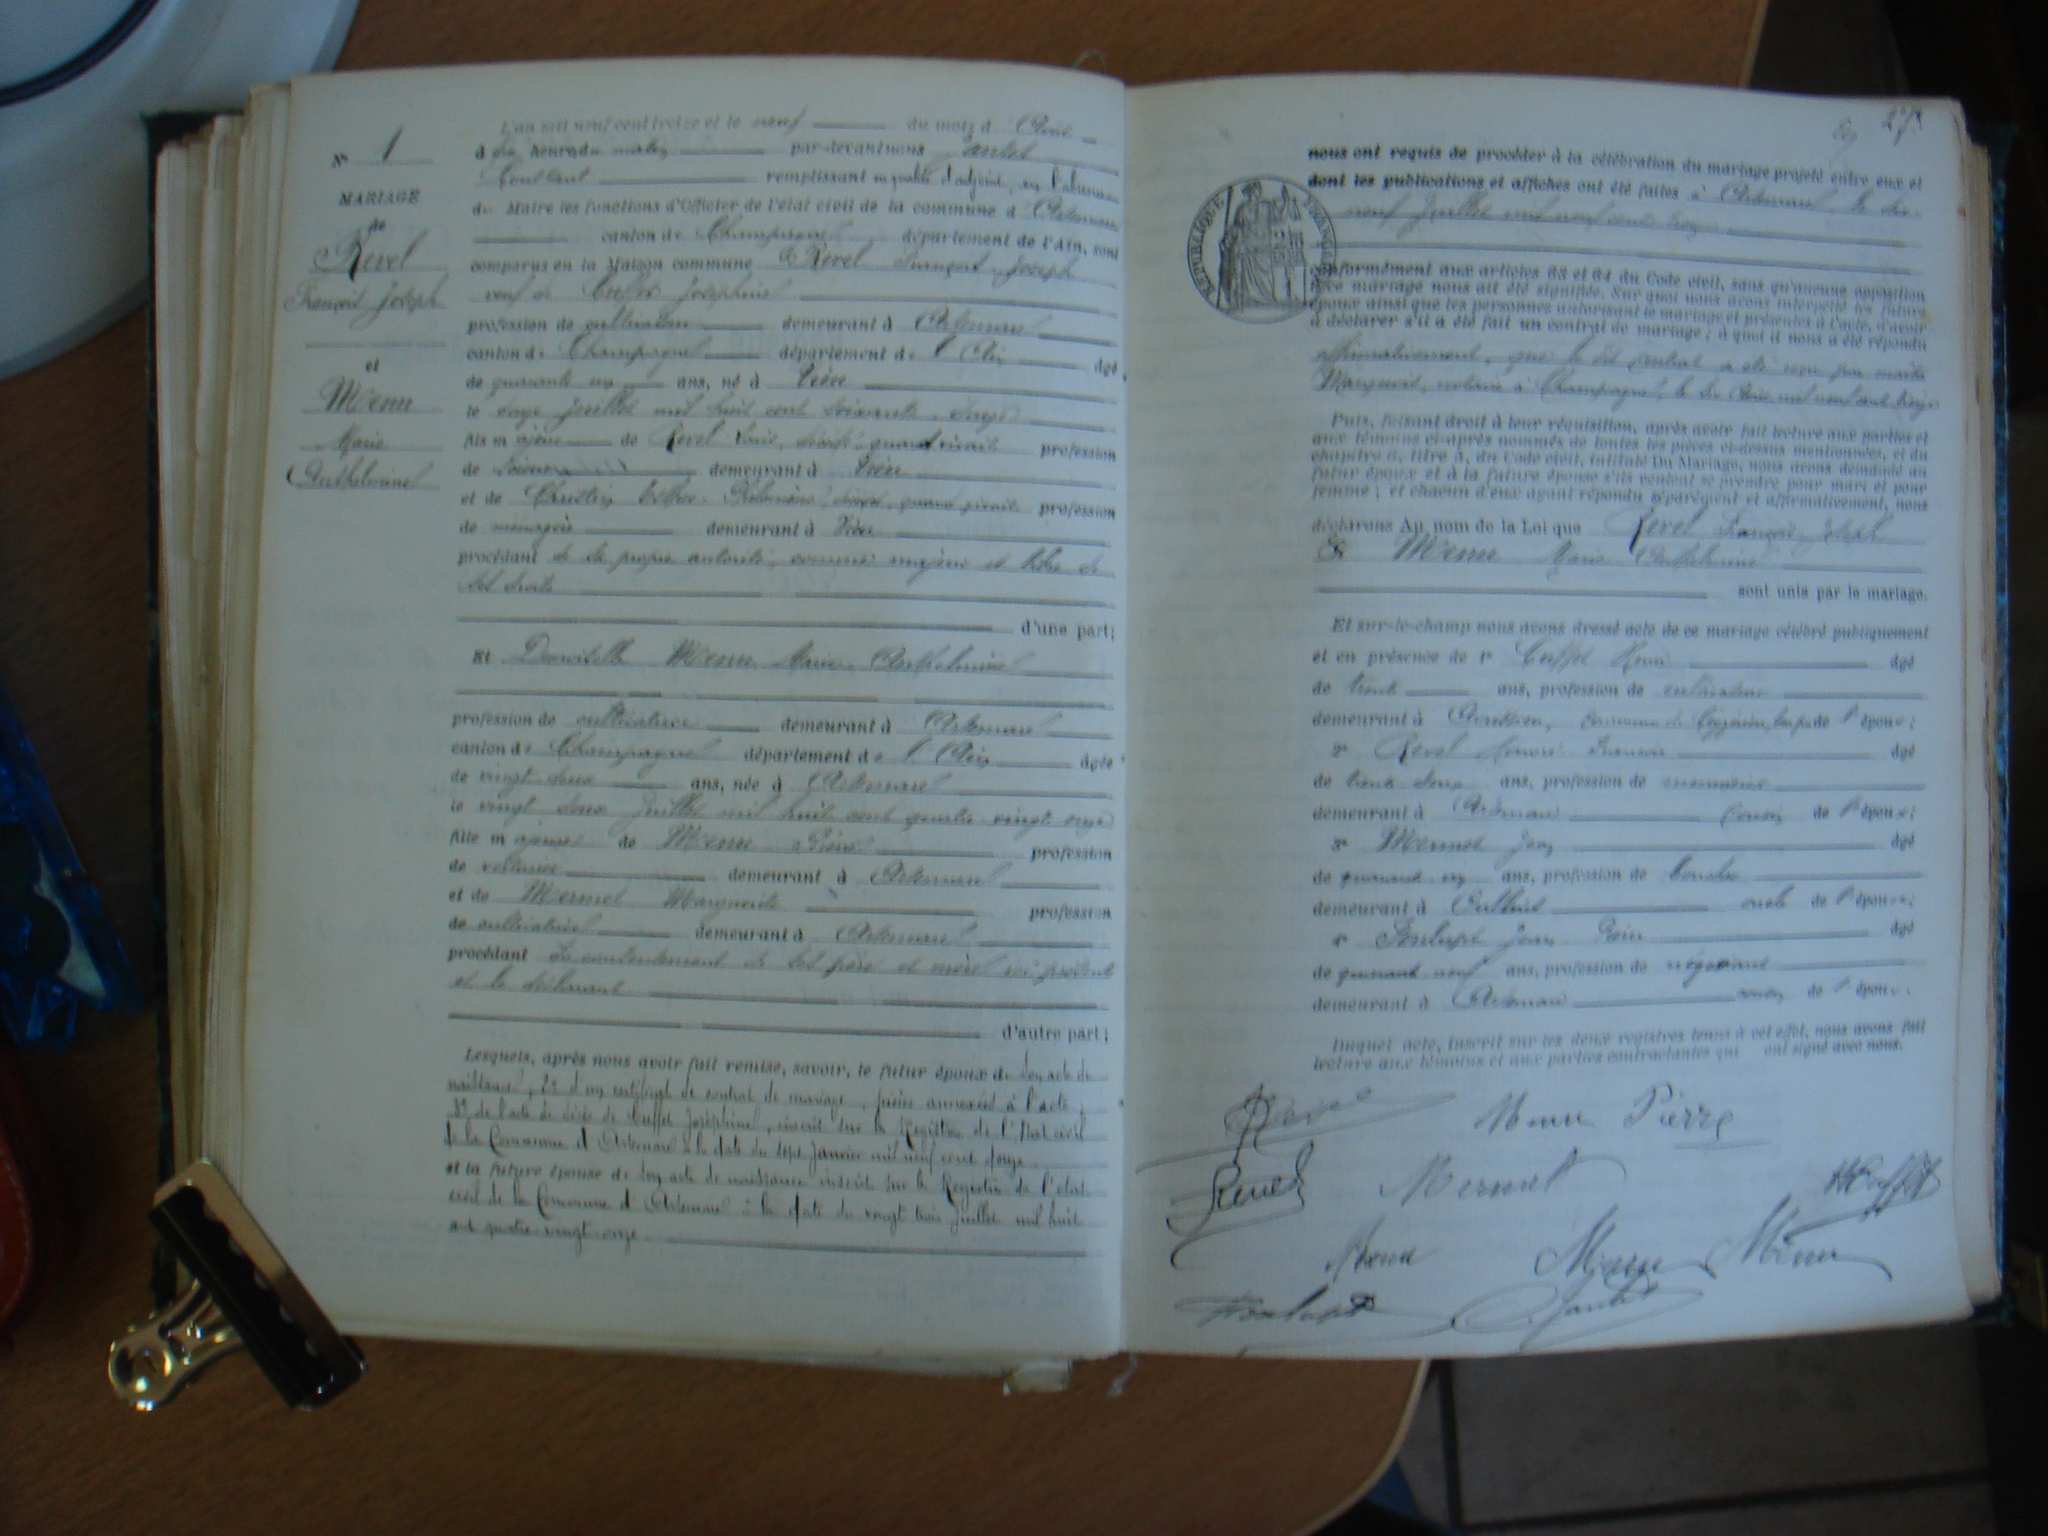 N° 1
MARIAGE
de
Revel
François Joseph
et
Menu
Marie
Anthelmine
L'an mil neuf cent treize et le neuf du mois d'Août
à dix heures du matin par-devant nous Jantet
Constant remplissant en qualité d'adjoint, en l'absence
du Maire les fonctions d'Officier de l'état civil de la commune d'Artemare
canton de Champagne département de l'Ain, sont
comparus en la Maison commune Revel François Joseph
veuf de Cuffet Joséphine
profession de cultivateur demeurant à Artemare
canton de Champagne département de l'Ain âgé
de quarante un ans, né à
le onze juillet mil huit cent soixante douze
fils majeur de Revel Louis, décédé quand vivait profession
de demeurant à
et de Christin Esther Philomène décédée quand vivait profession
de ménagère demeurant à
procédant de sa propre autorité, comme majeur et libre de
ses droits
d'une part;
Et Demoiselle Menu Marie Anthelmine
profession de cultivatrice demeurant à Artemare
canton de Champagne département de l'Ain âgée
de vingt deux ans, née à Artemare
le vingt deux juillet mil huit cent quatre vingt onze
fille majeure de Menu Pierre profession
de voiturier demeurant à Artemare
et de Mermet Marguerite profession
de cultivatrice demeurant à Artemare
procédant du consentement de ses père et mère ici présents
et le déclarant
d'autre part;
Lesquels, après nous avoir fait remise, savoir, le futur époux de son acte de
naissance, 2° d'un certificat de contrat de mariage, pièces annexées à l'acte,
3° de l'acte de décès de Cuffet Joséphine, inscrit sur le Registre de l'Etat civil
de la Commune d'Artemare à la date du sept Janvier mil neuf cent douze
et la future épouse de son acte de naissance inscrit sur le Registre de l'état
civil de la Commune d'Artemare à la date du vingt trois juillet mil huit
cent quatre vingt onze
27
nous ont requis de procéder à la célébration du mariage projeté entre eux et
dont les publications et affiches ont été faites à Artemare le dix
neuf juillet mil neuf cent treize
RÉPUBLIQUE FRANÇAISE
conformément aux articles 63 et 64 du Code civil, sans qu'aucune opposition
à ce mariage nous ait été signifiée. Sur quoi nous avons interpellé les futurs
époux ainsi que les personnes autorisant le mariage et présentes à l'acte, d'avoir
à déclarer s'il a été fait un contrat de mariage; à quoi il nous a été répondu
affirmativement, que le dit contrat a été reçu par maître
notaire à Champagne, le six Août mil neuf cent treize
Puis, faisant droit à leur réquisition, après avoir fait lecture aux parties et
aux témoins ci-après nommés de toutes les pièces ci-dessus mentionnées, et du
chapitre 6, titre 5, du Code civil, intitulé Du Mariage, nous avons demandé au
futur époux et à la future épouse s'ils veulent se prendre pour mari et pour
femme; et chacun d'eux ayant répondu séparément et affirmativement, nous
déclarons Au nom de la Loi que Revel François Joseph
Et Menu Marie Anthelmine
sont unis par le mariage.
Et sur-le-champ nous avons dressé acte de ce mariage célébré publiquement
et en présence de 1° Cuffet Henri âgé
de trente ans, profession de cultivateur
demeurant à commune de de l'époux;
2° Revel François âgé
de trente deux ans, profession de menuisier
demeurant à Artemare cousin de l'époux;
3° Mermet Jean âgé
de quarante un ans, profession de
demeurant à oncle de l'épouse;
4° Jean âgé
de quarante neuf ans, profession de négociant
demeurant à Artemare de l'épouse.
Duquel acte, inscrit sur les deux registres tenus à cet effet, nous avons fait
lecture aux témoins et aux parties contractantes qui ont signé avec nous.
Revel Menu Pierre
Revel Mermet H Cuffet
Menu Menu Menu
Jantet